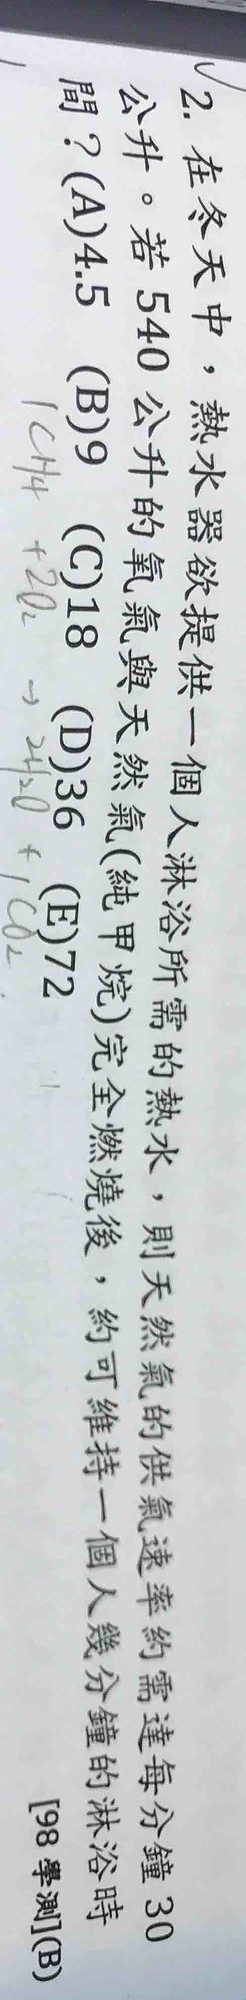 2. 在冬天中，熱水器欲提供一個人淋浴所需的熱水，則天然氣的供氣速率約需達每分鐘 30
公升。若 540 公升的氧氣與天然氣(純甲烷)完全燃燒後，約可維持一個人幾分鐘的淋浴時
間？(A)4.5 (B)9 (C)18 (D)36 (E)72
[98 學測](B)
1CH4 + 2O2 → 2H2O + 1CO2